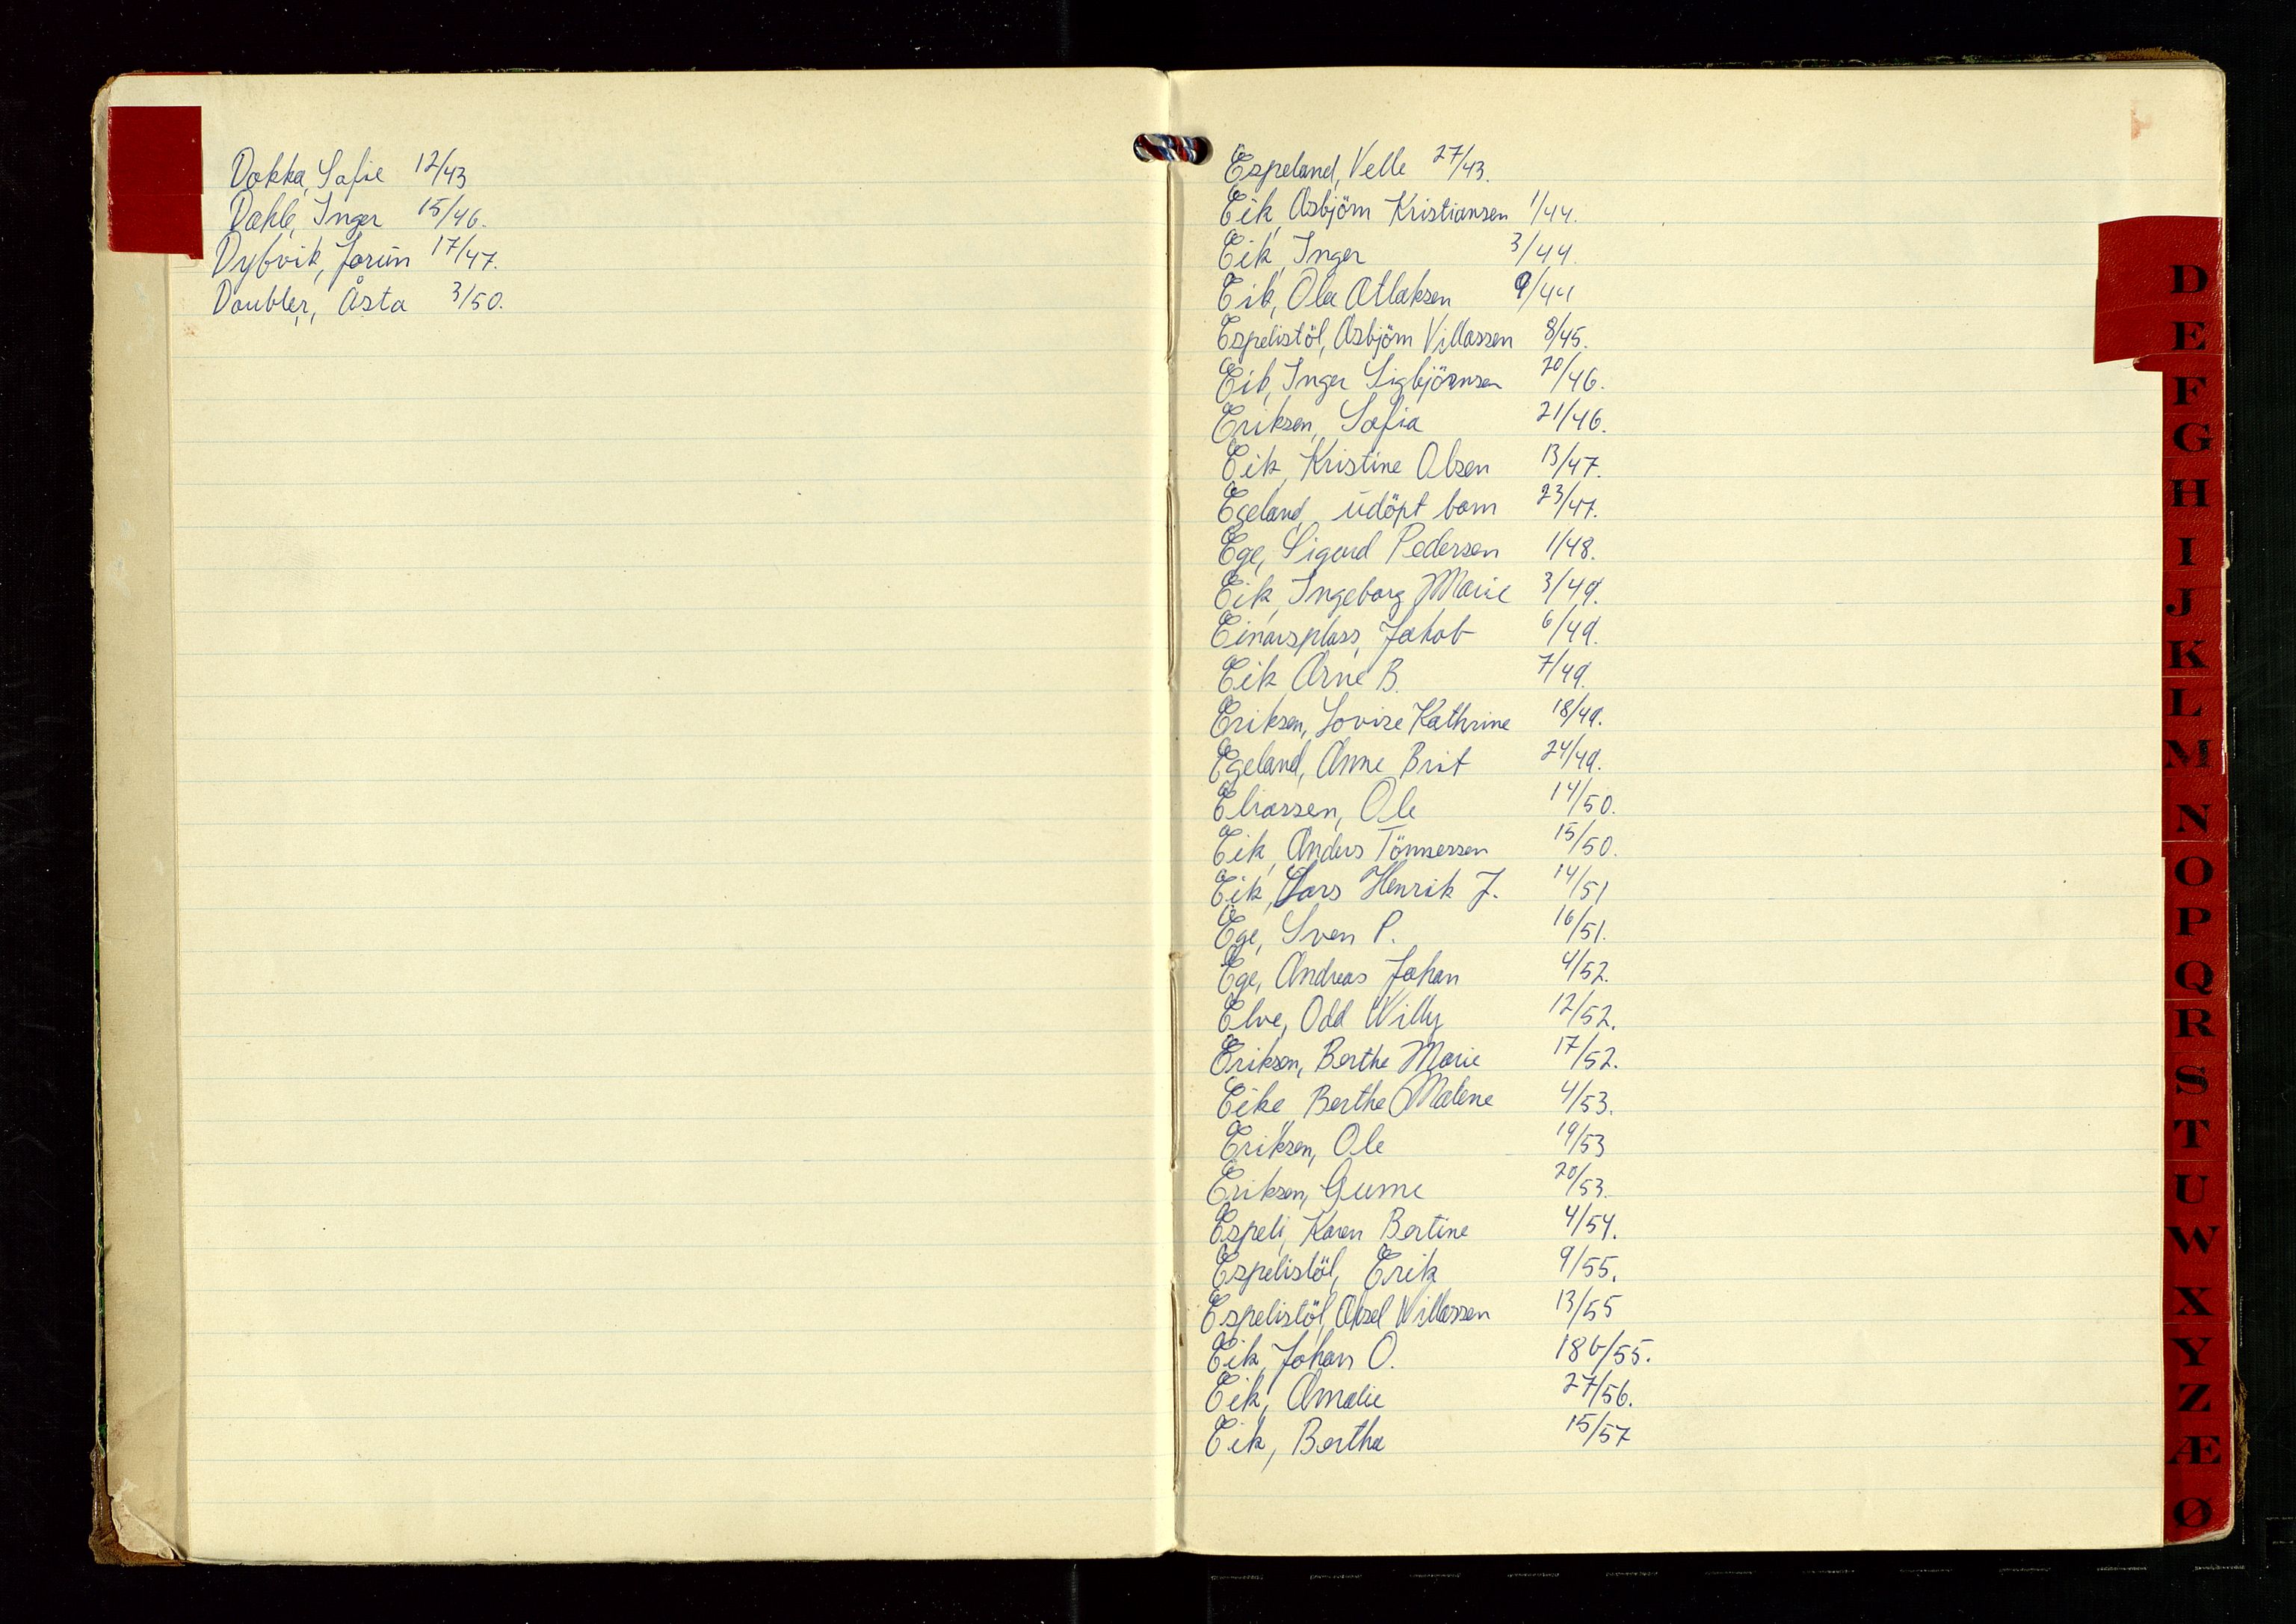 Dokka, Sofie 12/43
Dahle, Inger 15/46.
Dybvik, Jorun 17/47.
Doubler, Åsta 3/50.
Espeland, Velle 27/43.
Eik, Asbjörn Kristiansen 1/44.
Eik, Inger 3/44.
Eik, Ola Atlaksen 9/44
Espelistöl, Asbjörn Villassen 8/45.
Eik, Inger Sigbjörnsen 20/46.
Eriksen, Sofia 21/46.
Eik, Kristine Olsen 13/47.
Egeland, udöpt barn 23/47.
Ege, Sigurd Pedersen 1/48.
Eik, Ingeborg Marie 3/49.
Einarsplass, Jakob 6/49.
Eik Arne B. 7/49.
Eriksen, Lovise Kathrine 18/49.
Egeland, Anne Brit 24/49.
Eliassen, Ole 14/50.
Eik, Anders Tönnessen 15/50.
Eik, Lars Henrik J. 14/51
Ege, Sven P. 16/51.
Ege, Andreas Johan 4/52.
Elve, Odd Willy 12/52.
Eriksen, Berthe Marie 17/52.
Eike, Berthe Malene 4/53.
Eriksen, Ole 19/53
Eriksen, Gunne 20/53.
Espeli, Karen Bertine 4/54.
Espelistöl, Erik 9/55.
Espelistöl, Aksel Willassen 13/55
Eik, Johan O. 18b/55.
Eik, Amalie 27/56.
Eik, Bertha 15/57
D
E
F
G
H
I
J
K
L
M
N
O
P
Q
R
S
T
U
W
X
Y
Z
Æ
Ø